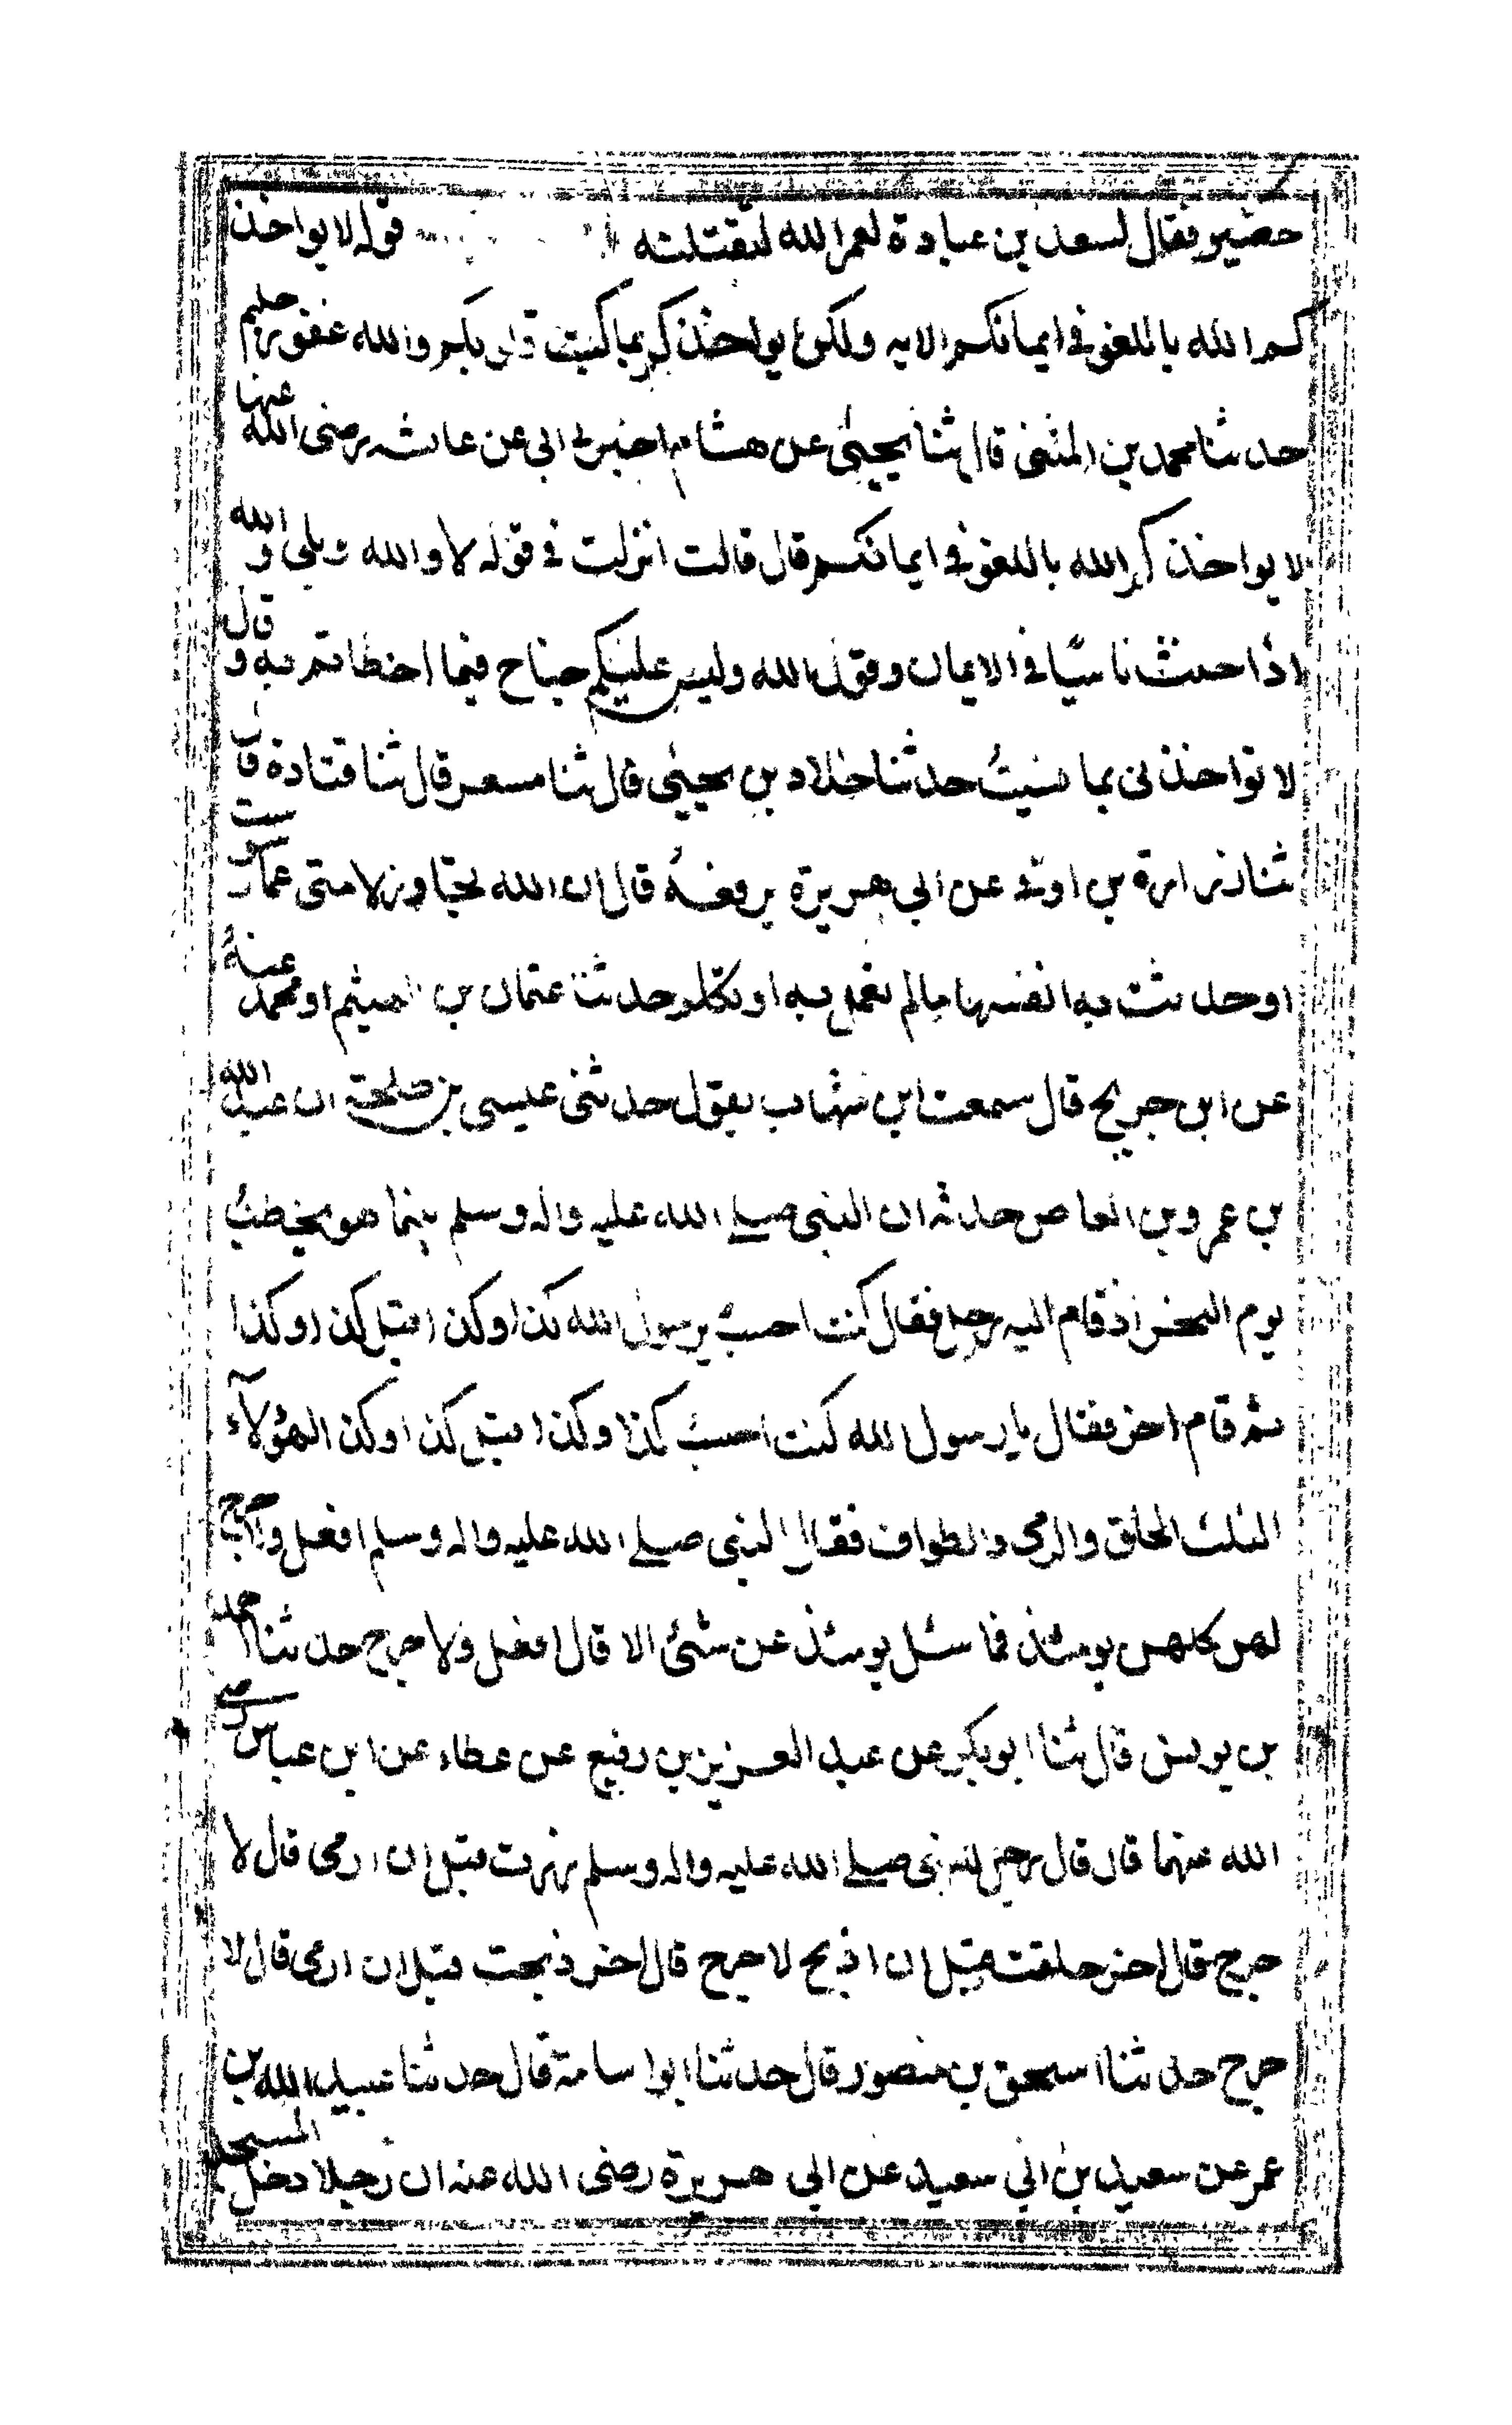 حضير فقال لسعد بن عبادة لعمر الله لنقتلنه قوله لا يواخذ
كم الله باللغو في ايمانكم الايه ولكن يواخذكم بما كسبت قلوبكم والله غفور حليم
حدثنا محمد بن المثنى قال ثنا يحيى عن هشام اخبرني ابي عن عائشه رضى الله عنها
لا يواخذكم الله باللغو في ايمانكم قال قالت انزلت في قوله لا والله وبلى والله
اذا حنث ناسيًا في الايمان وقول الله وليس عليكم جناح فيما اخطاتم به وقال
لا تواخذني بما نسيتُ حدثنا خلاد بن يحيى قال ثنا مسعر قال ثنا قتادة قال
ثنا زرارة بن اوفى عن ابي هريرة يرفعهُ قال ان الله تجاوز لامتى عما وسوست
او حدثت به انفسها ما لم تعمل به او تكلم حدثنا عثمان بن الهيثم او محمد عنهُ
عن ابن جريج قال سمعت ابن شهاب يقول حدثنى عيسى بن طلحة ان عبد الله
بن عمرو بن العاص حدثه ان النبى صلى الله عليه واله وسلم بينما هو يخطبُ
يوم النحر اذ قام اليه رجل فقال كنت احسبُ يرسول الله كذا وكذا قبل كذا وكذا
ثم قام اخر فقال يا رسول الله كنت احسبُ كذا وكذا قبل كذا وكذا لهؤلآء
الثلث الحلق والرمى والطواف فقال النبى صلى الله عليه واله وسلم افعل ولا حرج
لهن كلهن يومئذ فما سئل يومئذ عن شئ الا قال افعل ولا حرج حدثنا احمد
بن يونس قال ثنا ابو بكر عن عبد العزيز بن رفيع عن عطاء عن ابن عباس رضى
الله عنهما قال قال رجل للنبى صلى الله عليه واله وسلم زرت قبل ان ارمى قال لا
حرج قال اخر حلقت قبل ان اذبح قال لا حرج قال اخر ذبحت قبل ان ارمى قال لا
حرج حدثنا اسحق بن منصور قال حدثنا ابو اسامة قال حدثنا عبيد الله بن
عمر عن سعيد بن ابي سعيد عن ابي هريرة رضى الله عنه ان رجلا دخل المسجد